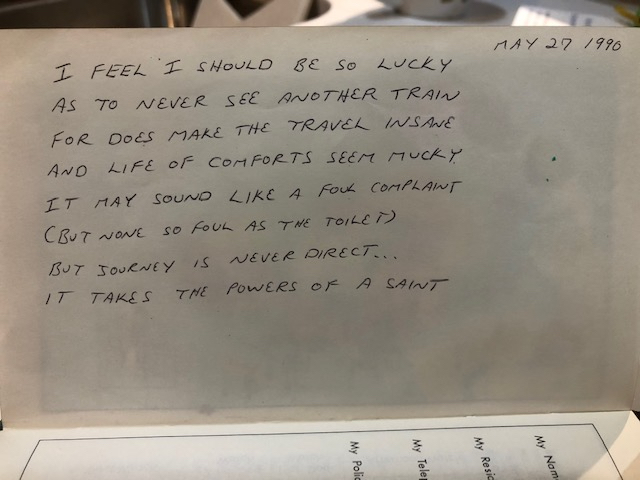 MAY 27 1990
I FEEL I SHOULD BE SO LUCKY
AS TO NEVER SEE ANOTHER TRAIN
FOR DOES MAKE THE TRAVEL INSANE
AND LIFE OF COMFORTS SEEM MUCKY
IT MAY SOUND LIKE A FOUL COMPLAINT
(BUT NONE SO FOUL AS THE TOILET)
BUT JOURNEY IS NEVER DIRECT...
IT TAKES THE POWERS OF A SAINT
My Nam
My Resid
My Tele
My Polic